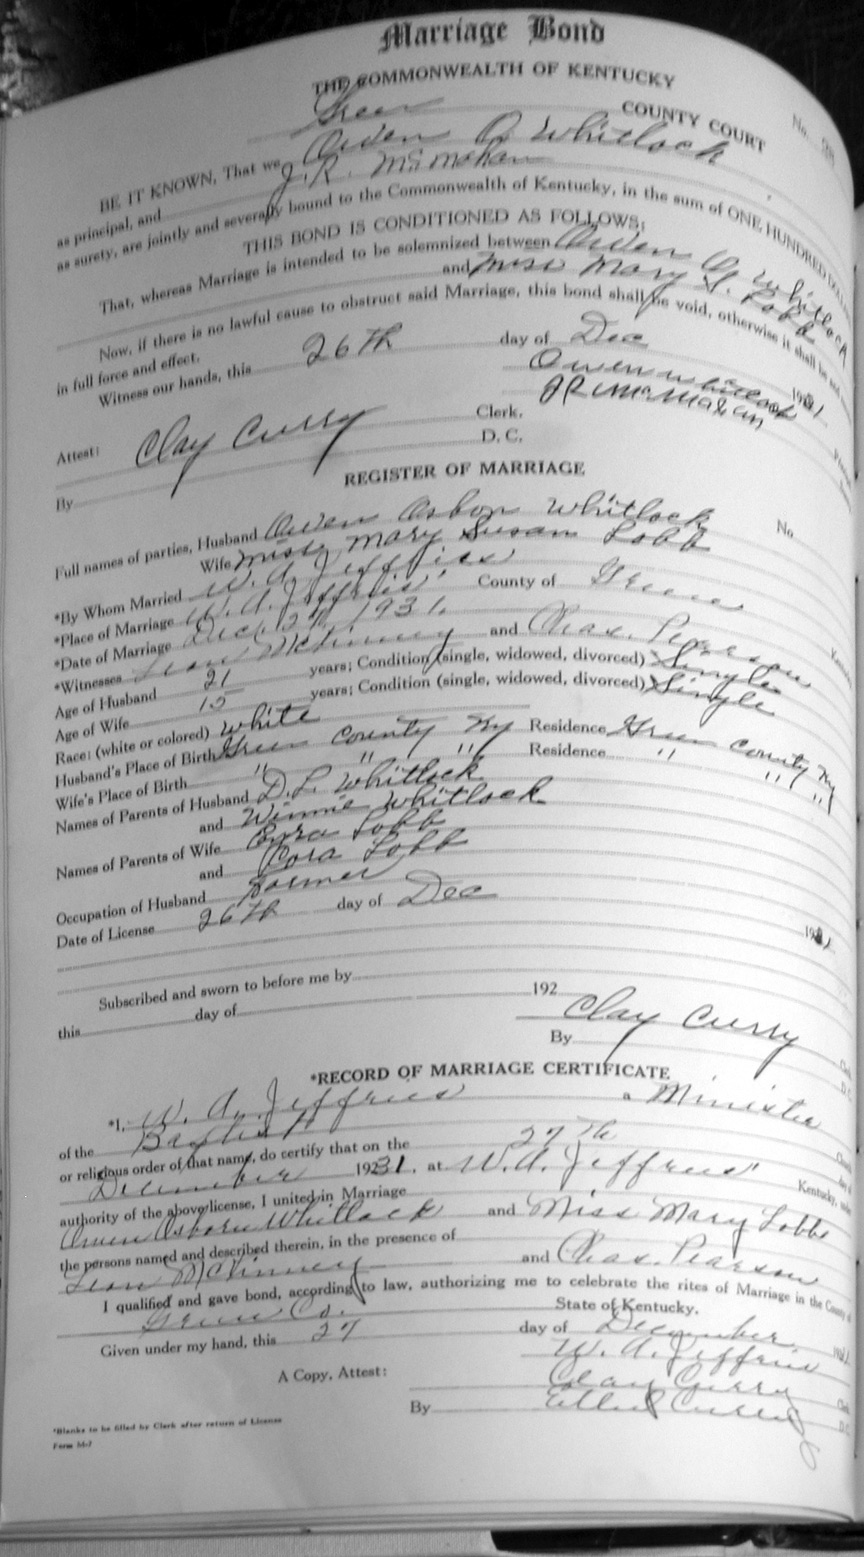 Marriage Bond
THE COMMONWEALTH OF KENTUCKY
Green COUNTY COURT
No.
BE IT KNOWN, That we Owen O Whitlock
as principal, and J. R. McMahan
as surety, are jointly and severally bound to the Commonwealth of Kentucky, in the sum of ONE HUNDRED
THIS BOND IS CONDITIONED AS FOLLOWS:
That, whereas Marriage is intended to be solemnized between Owen O Whitlock
and Miss Mary S. Lobb
Now, if there is no lawful cause to obstruct said Marriage, this bond shall be void, otherwise it shall be
in full force and effect.
Witness our hands, this 26th day of Dec 1931
Owen Whitlock
J R McMahan
Attest: Clay Curry Clerk.
By D. C.
REGISTER OF MARRIAGE
No.
Full names of parties, Husband Owen Osborn Whitlock
Wife Miss Mary Susan Lobb
*By Whom Married W. A. Jeffries
*Place of Marriage W. A. Jeffries' County of Green
*Date of Marriage Dec. 27, 1931.
*Witnesses Leon McKinney and Chas. Pearson
Age of Husband 21 years; Condition (single, widowed, divorced) Single
Age of Wife 15 years; Condition (single, widowed, divorced) Single
Race: (white or colored) white
Husband's Place of Birth Green County Ky Residence Green County Ky
Wife's Place of Birth " " " Residence " " "
Names of Parents of Husband D. L. Whitlock
and Winnie Whitlock
Names of Parents of Wife Ezra Lobb
and Cora Lobb
Occupation of Husband Farmer
Date of License 26th day of Dec 1931
Subscribed and sworn to before me by
this day of 192
Clay Curry
By
*RECORD OF MARRIAGE CERTIFICATE
*I, W. A. Jeffries a Minister
of the Baptist
or religious order of that name, do certify that on the 27th
December 1931. at W. A. Jeffries' Kentucky, under
authority of the above license, I united in Marriage
Owen Osborn Whitlock and Miss Mary Lobb
the persons named and described therein, in the presence of
Leon McKinney and Chas. Pearson
I qualified and gave bond, according to law, authorizing me to celebrate the rites of Marriage in the County of
Green Co. State of Kentucky.
Given under my hand, this 27 day of December
W. A. Jeffries
A Copy, Attest: Clay Curry
By Curry
*Blanks to be filled by Clerk after return of License